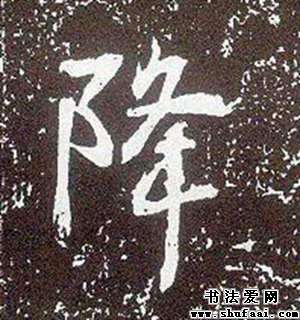 降
书法爱网
www.shufaai.com